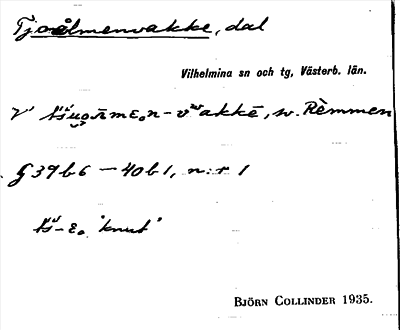 Tjoålmenvakke, dal
Vilhelmina sn och tg, Västerb. län.
V akkē, sv. Rèmmen
§ 39 b 6 — 40 b 1, n:r 1
"knut"
BJÖRN COLLINDER 1935.